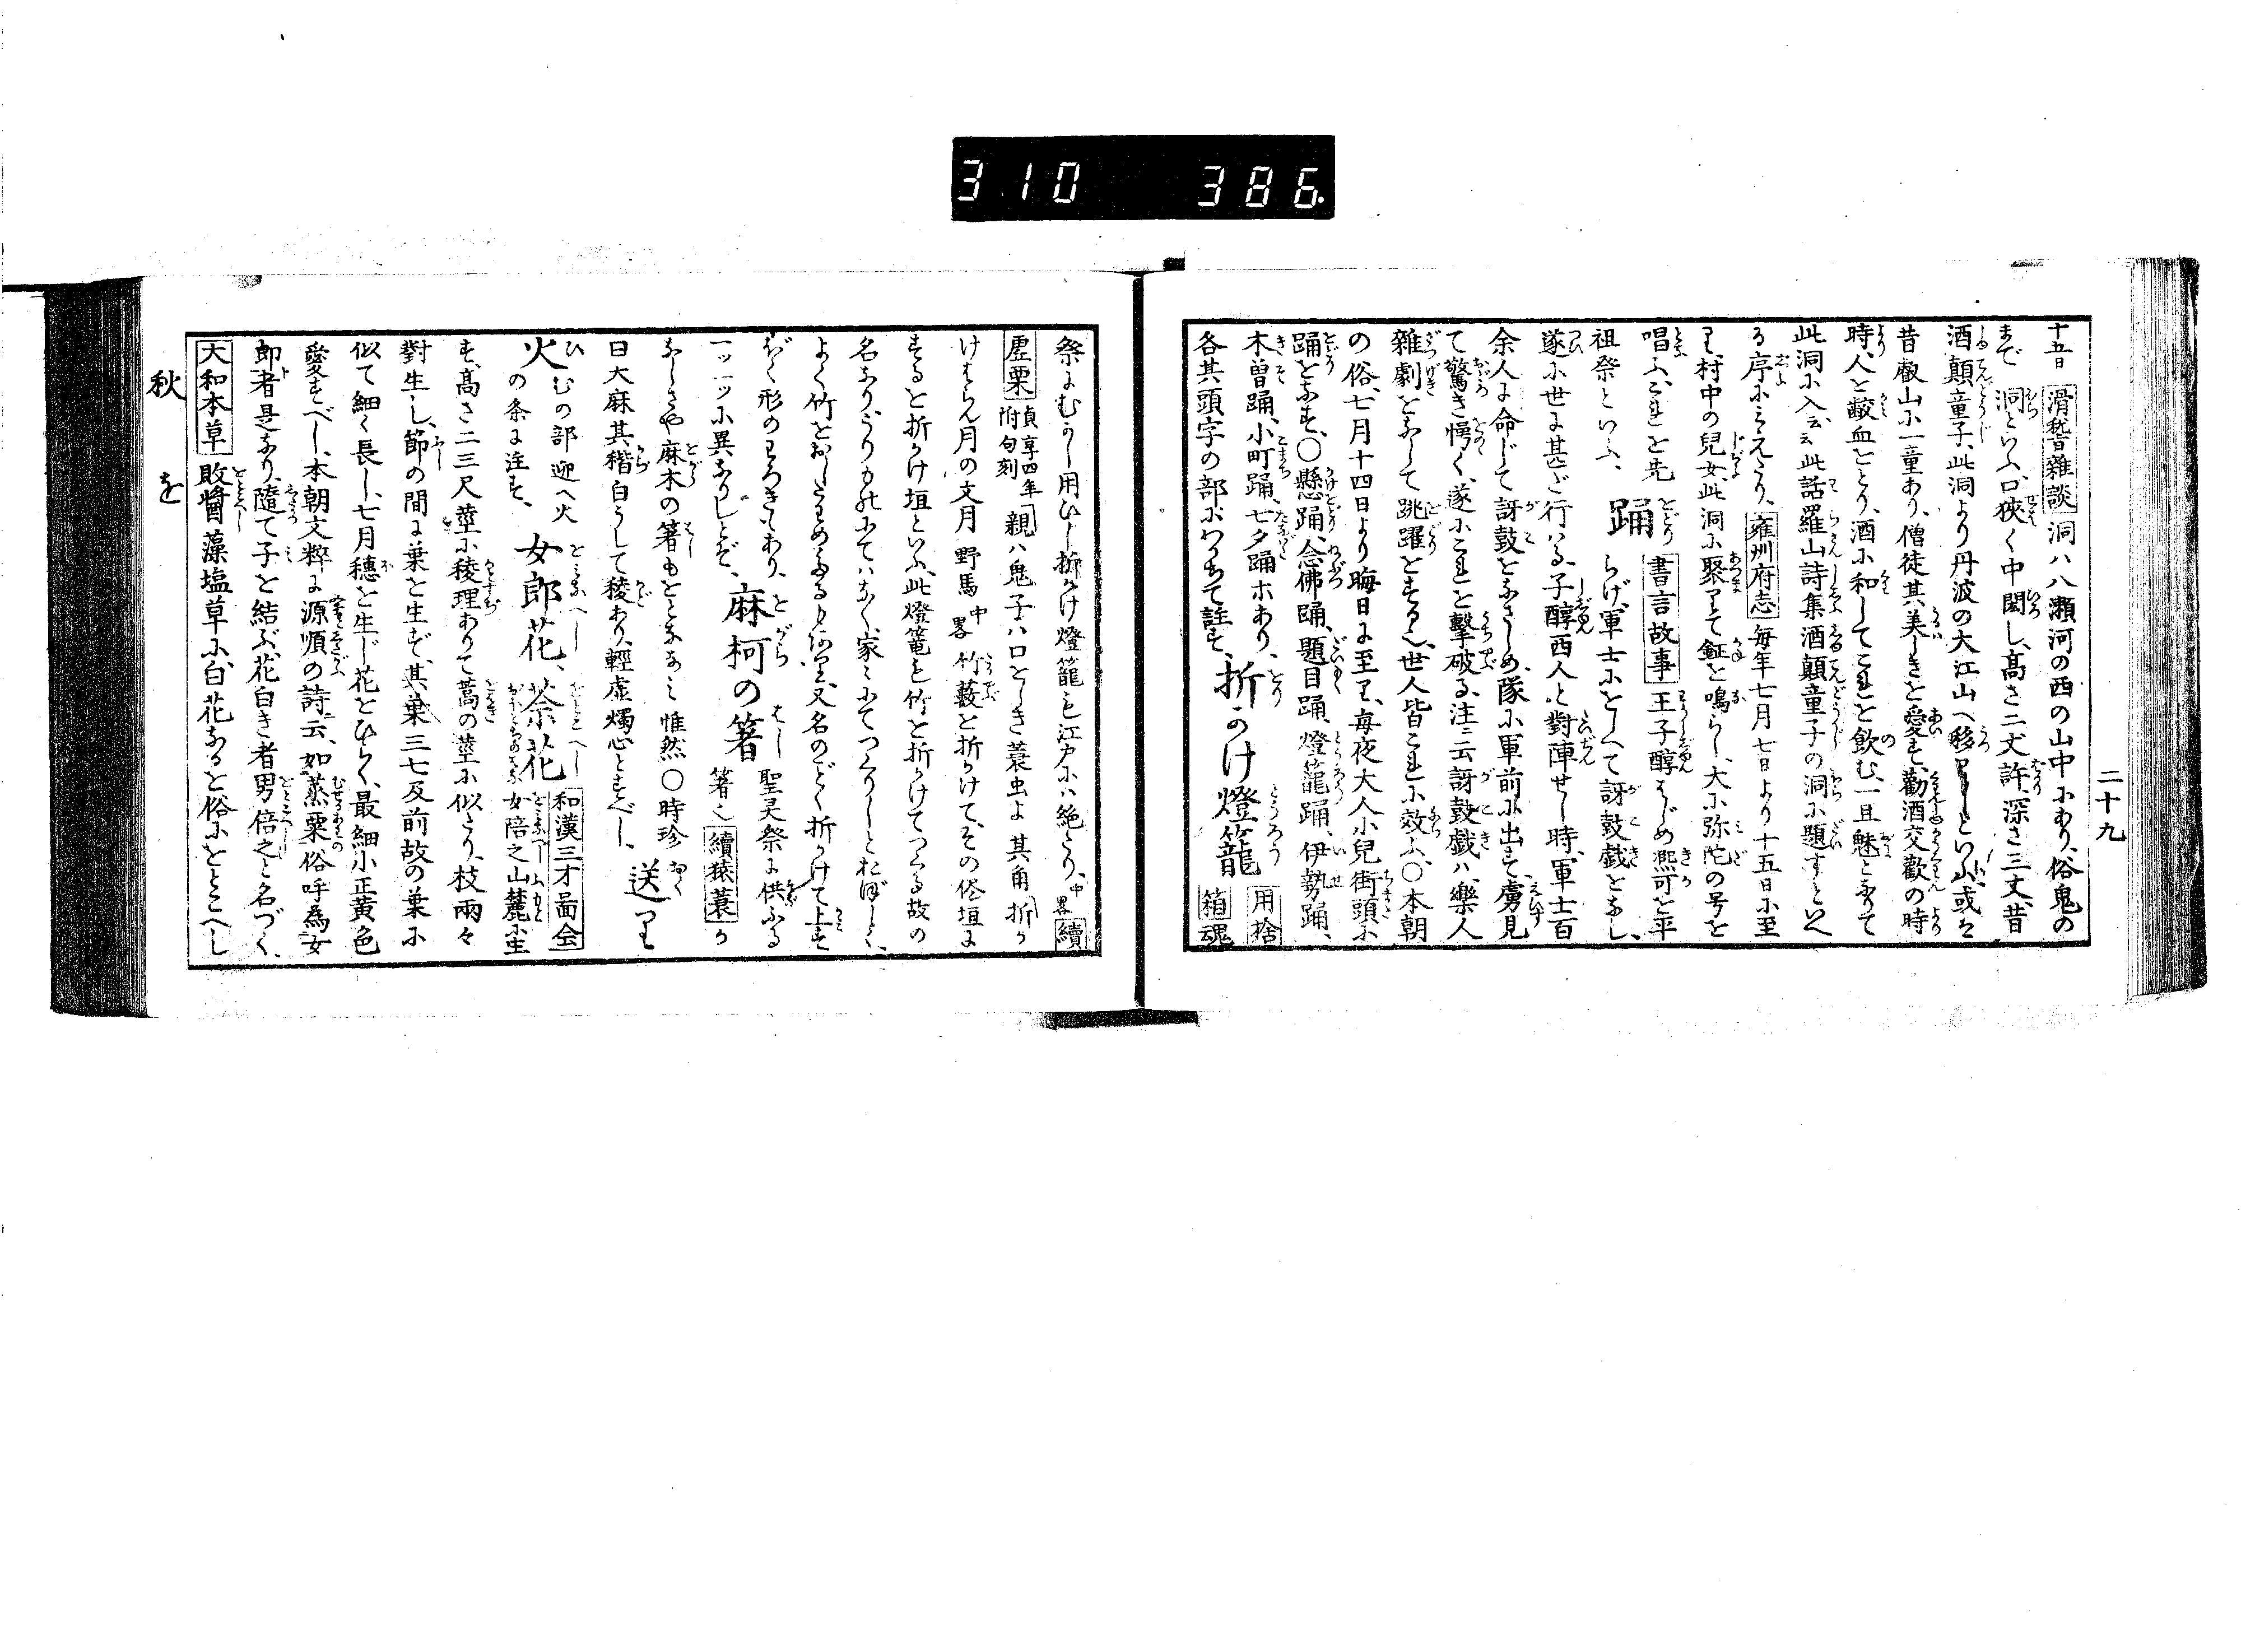 310 386
二十九
十五日 滑稽雜談 洞ハ八瀬河の西の山中にあり、俗鬼の
まで 洞といふ、口狹く中闊し、高さ二丈許、深さ三丈、昔
酒顛童子、此洞より丹波の大江山へ移りしといふ、或云
昔叡山に一童あり、僧徒其美しきを愛す、勸酒交歡の時
時、人を齩血をとり、酒に和してこれを飲む、一旦魅となりて
此洞に入云云、此話羅山詩集酒顛童子の洞に題すといへ
る序にみえたり、 雍州府志 毎年七月七日より十五日に至
り、村中の兒女、此洞に聚りて鉦を鳴らし、大に弥陀の号を
唱ふ、これを先 踊 書言故事 王子醇はじめ熙河を平
祖祭といふ、 らげ、軍士にをしへて訝鼓戲をなし、
遂に世に甚ゞ行ハる、子醇西人と對陣せし時、軍士百
余人に命じて訝鼓をなさしめ、隊に軍前に出す、虜見
て驚き愕く、遂にこれを擊破る、注ニ云訝鼓戲ハ、樂人
雜劇をなして跳躍をする也、世人皆これに效ふ、〇本朝
の俗、七月十四日より晦日に至り、毎夜大人小兒街頭に
踊をなす、〇懸踊、念佛踊、題目踊、燈籠踊、伊勢踊、
木曽踊、小町踊、七夕踊ホあり、 折かけ燈籠 用捨
各其頭字の部にわかちて註す、 箱 魂
祭にむかし用ひし折かけ燈籠も江戸にハ絶たり、中畧 續
虚栗 貞享四年附句刻 親ハ鬼子ハ口をしき蓑虫よ 其角 折か
けはらん月の文月 野馬 中畧 竹藪を折かけて、その俗垣に
するを折かけ垣といふ、此燈篭も竹を折かけてつくる故の
名なり、うりものにてハなく、家々にてつくりしとおぼしく、
よく竹をおしたわめ、又名のごとく折かけて上す
形のまろきもあり、 麻柯の箸 聖灵祭に供ふる
一ツ一ツに異なりしとぞ、 箸也 續猿蓑 か
なしさや麻木の箸もをとななみ 惟然 〇時珍
曰大麻其稭白うして稜あり、輕虚燭心とすべし、 送り
火 むの部迎へ火の条に注す、 女郎花、茶花 和漢三才圖会 女陪之山麓に生
す、高さ二三尺莖に稜理ありて蒿の莖に似たり、枝兩々
對生し、節の間に葉を生ず、其葉三七及前故の葉に
似て細く長し、七月穂を生じ花をひらく、最細小正黄色
愛すべし、本朝文粹に源順の詩云、如蒸粟俗呼為女
郎者是なり、隨て子を結ぶ、花白き者男倍之と名づく、
大和本草 敗醬藻塩草に、白花なるを俗にをとこへし
秋 を